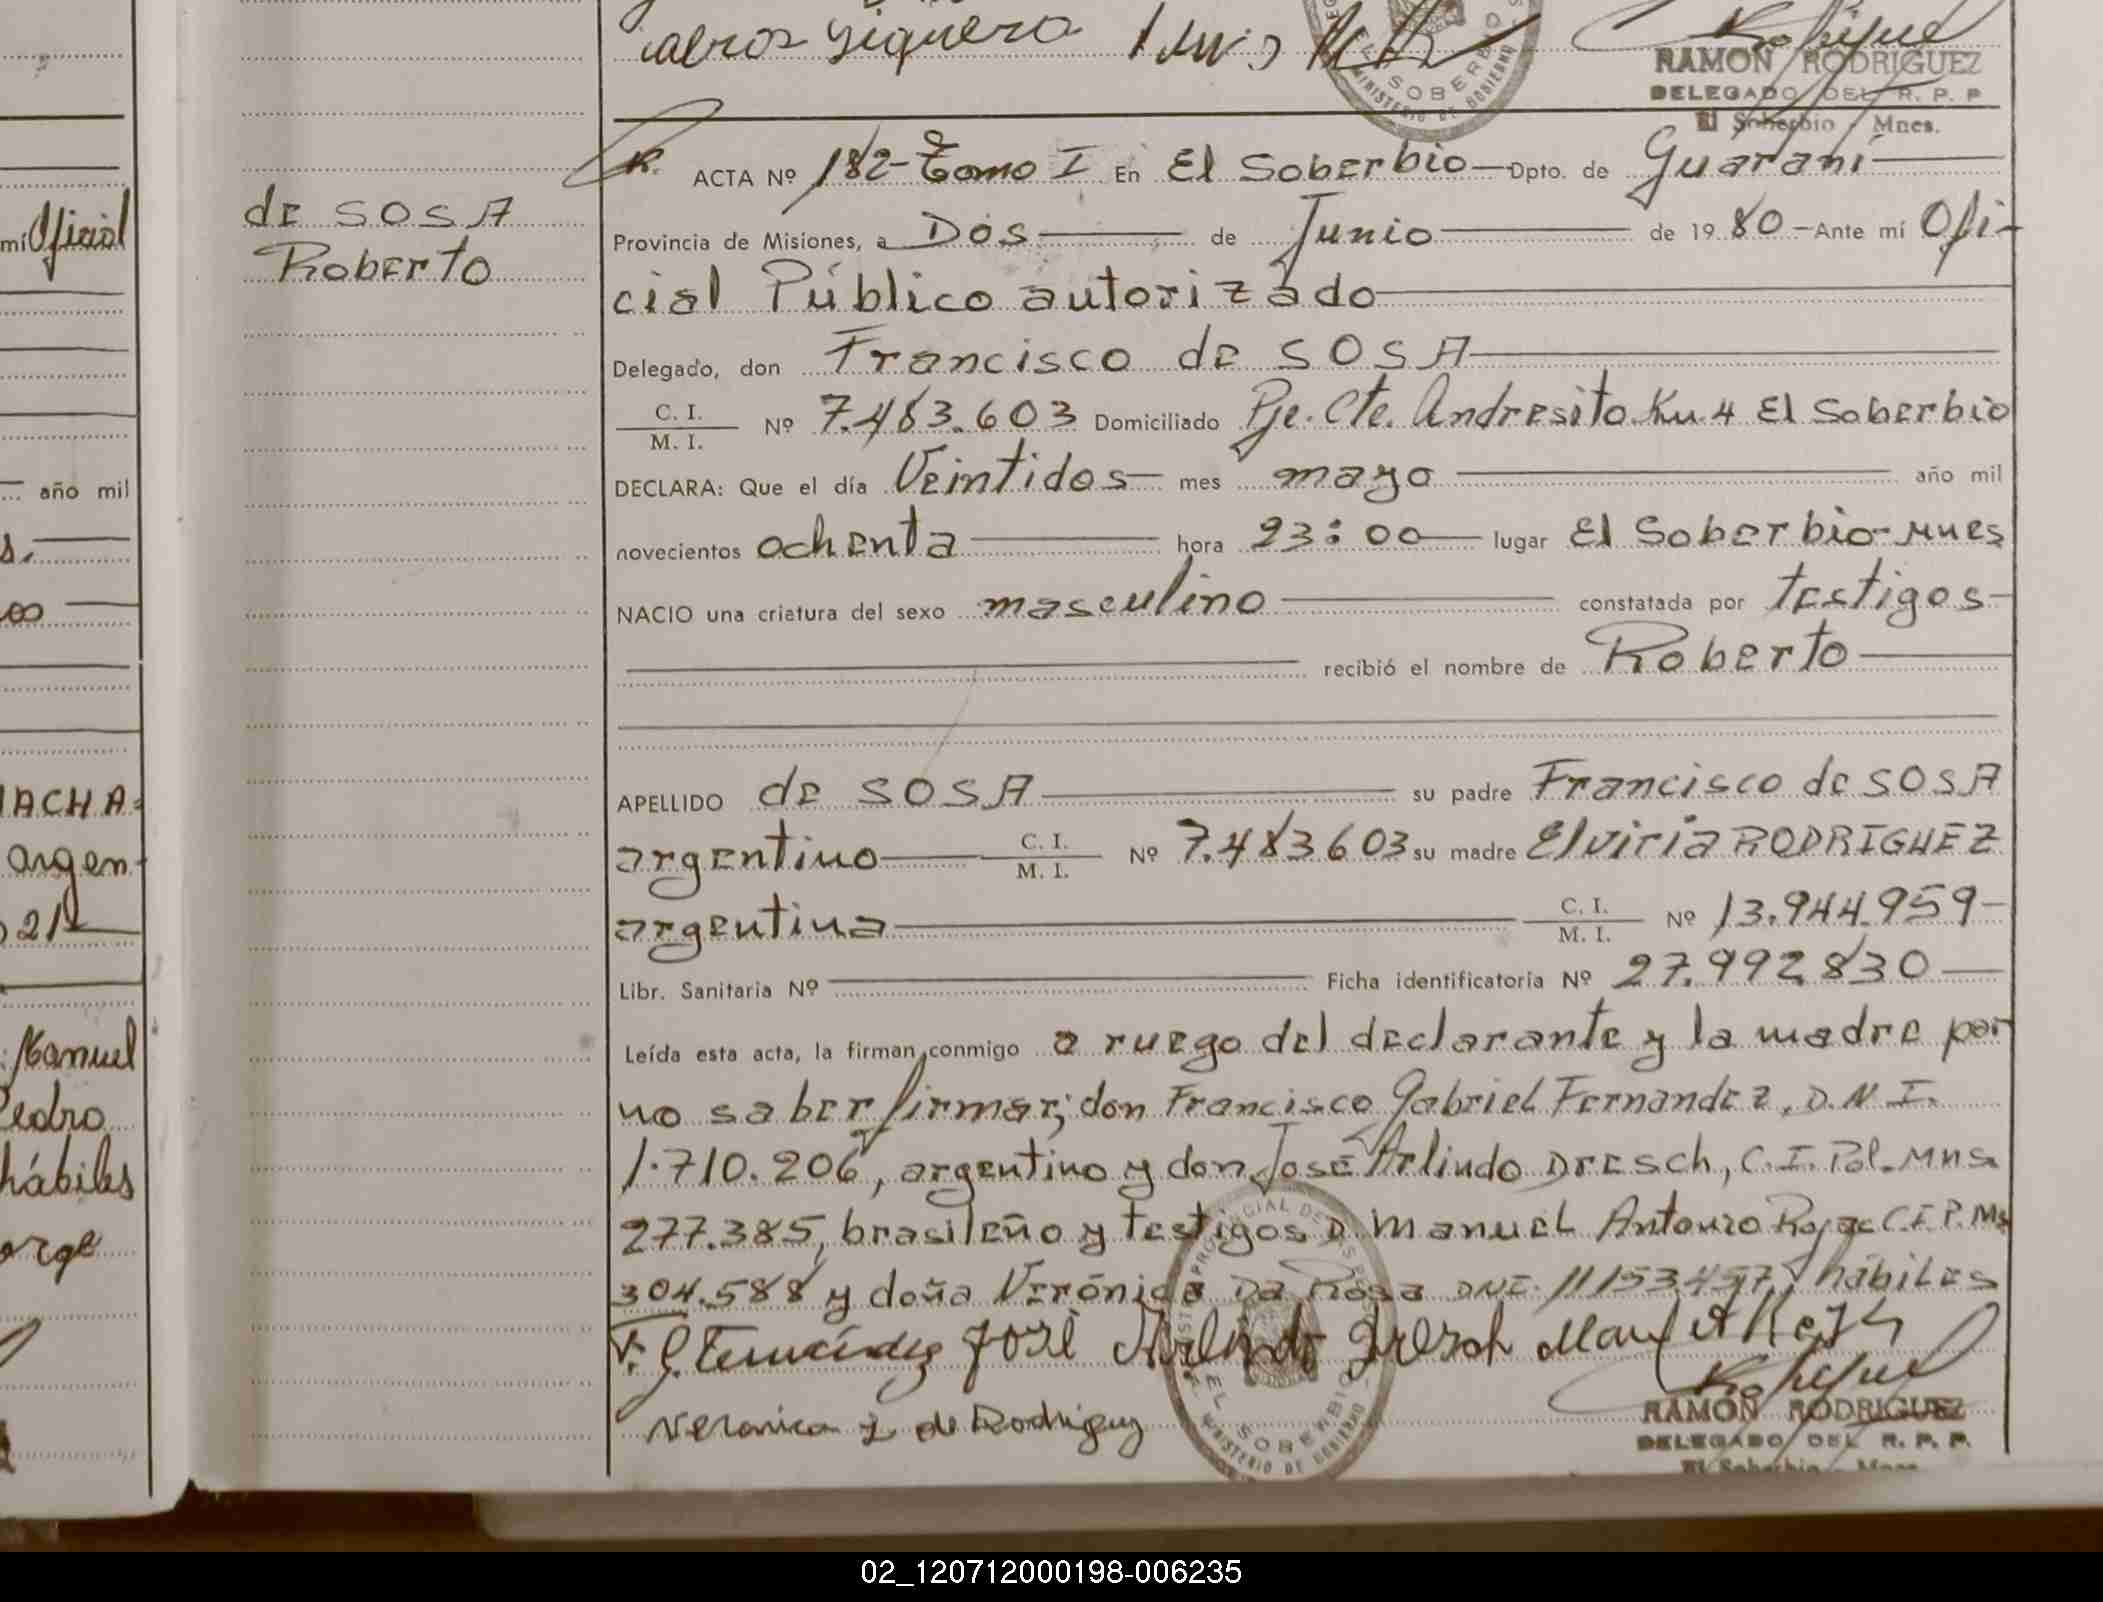 RAMON RODRIGUEZ
DELEGADO DEL R. P. P
El Soberbio - Mnes.
EL SOBERBIO
MINISTERIO DE GOBIERNO
de SOSA
Roberto
mi Oficial
año mil
argen-
Manuel
Pedro
hábiles
orge
ACTA Nº 182-Tomo I En El Soberbio Dpto. de Guaraní
Provincia de Misiones, a Dos de Junio de 1980 - Ante mí Ofi-
cial Público autorizado
Delegado, don Francisco de SOSA
C. I. / M. I. Nº 7.483.603 Domiciliado Pje. Cte. Andresito Km 4 El Soberbio
DECLARA: Que el día Veintidos mes mayo año mil
novecientos ochenta hora 23:00 lugar El Soberbio-Mnes
NACIO una criatura del sexo masculino constatada por testigos
recibió el nombre de Roberto
APELLIDO de SOSA su padre Francisco de SOSA
argentino C. I. / M. I. Nº 7.483603 su madre Elviria RODRIGUEZ
argentina C. I. / M. I. Nº 13.944.959-
Libr. Sanitaria Nº Ficha identificatoria Nº 27.992.830
Leída esta acta, la firman conmigo a ruego del declarante y la madre por
no saber firmar; don Francisco Gabriel Fernandez, D.N.I.
1.710.206, argentino y don José Arlindo Dresch, C.I. Pol. Mns.
277.385, brasileño y testigos D. Manuel Antonio Rojas C.I.P.Ms
304.588 y doña Verónica Da Rosa DNI. 11153457, hábiles
F. G. Fernández José Arlindo Dresch
Veronica de Rodriguez
EL SOBERBIO
MINISTERIO DE GOBIERNO
RAMON RODRIGUEZ
DELEGADO DEL R. P. P.
El Soberbio - Mnes.
02_120712000198-006235